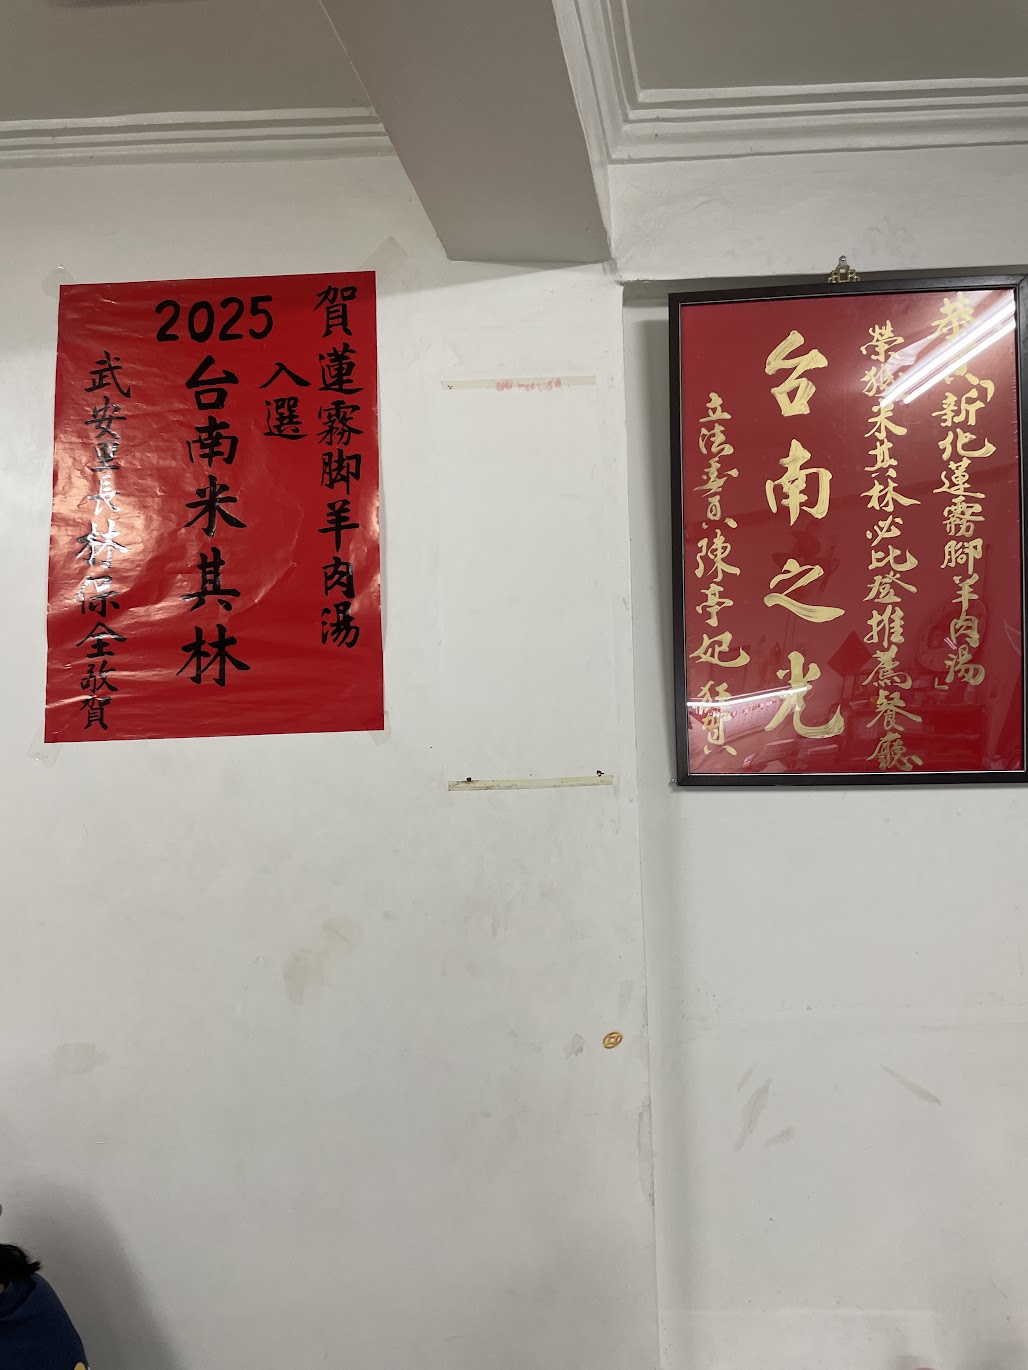 賀蓮霧脚羊肉湯
入選
2025
台南米其林
武安里長林保全敬賀
恭賀「新化蓮霧腳羊肉湯」
榮獲米其林必比登推薦餐廳
台南之光
立法委員陳亭妃 狂賀